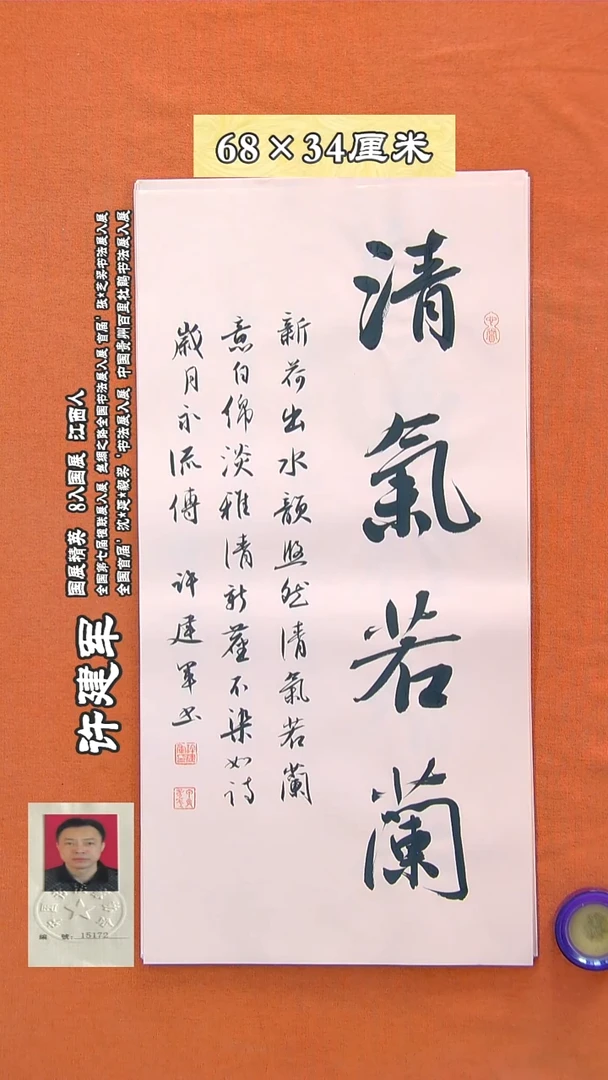 68×34厘米
清氣若蘭
新荷出水韻悠然清氣若蘭
意自綿淡雅清新塵不染如詩
歲月永流傳 许建軍书
许建军
国展精英 8入国展 江西人
全国第七届楹联展入展 丝绸之路全国书法展入展 首届'张*芝奖书法展入展
全国首届'沈*延*毅奖'书法展入展 中国贵州百里杜鹃书法展入展
編 號: 15172